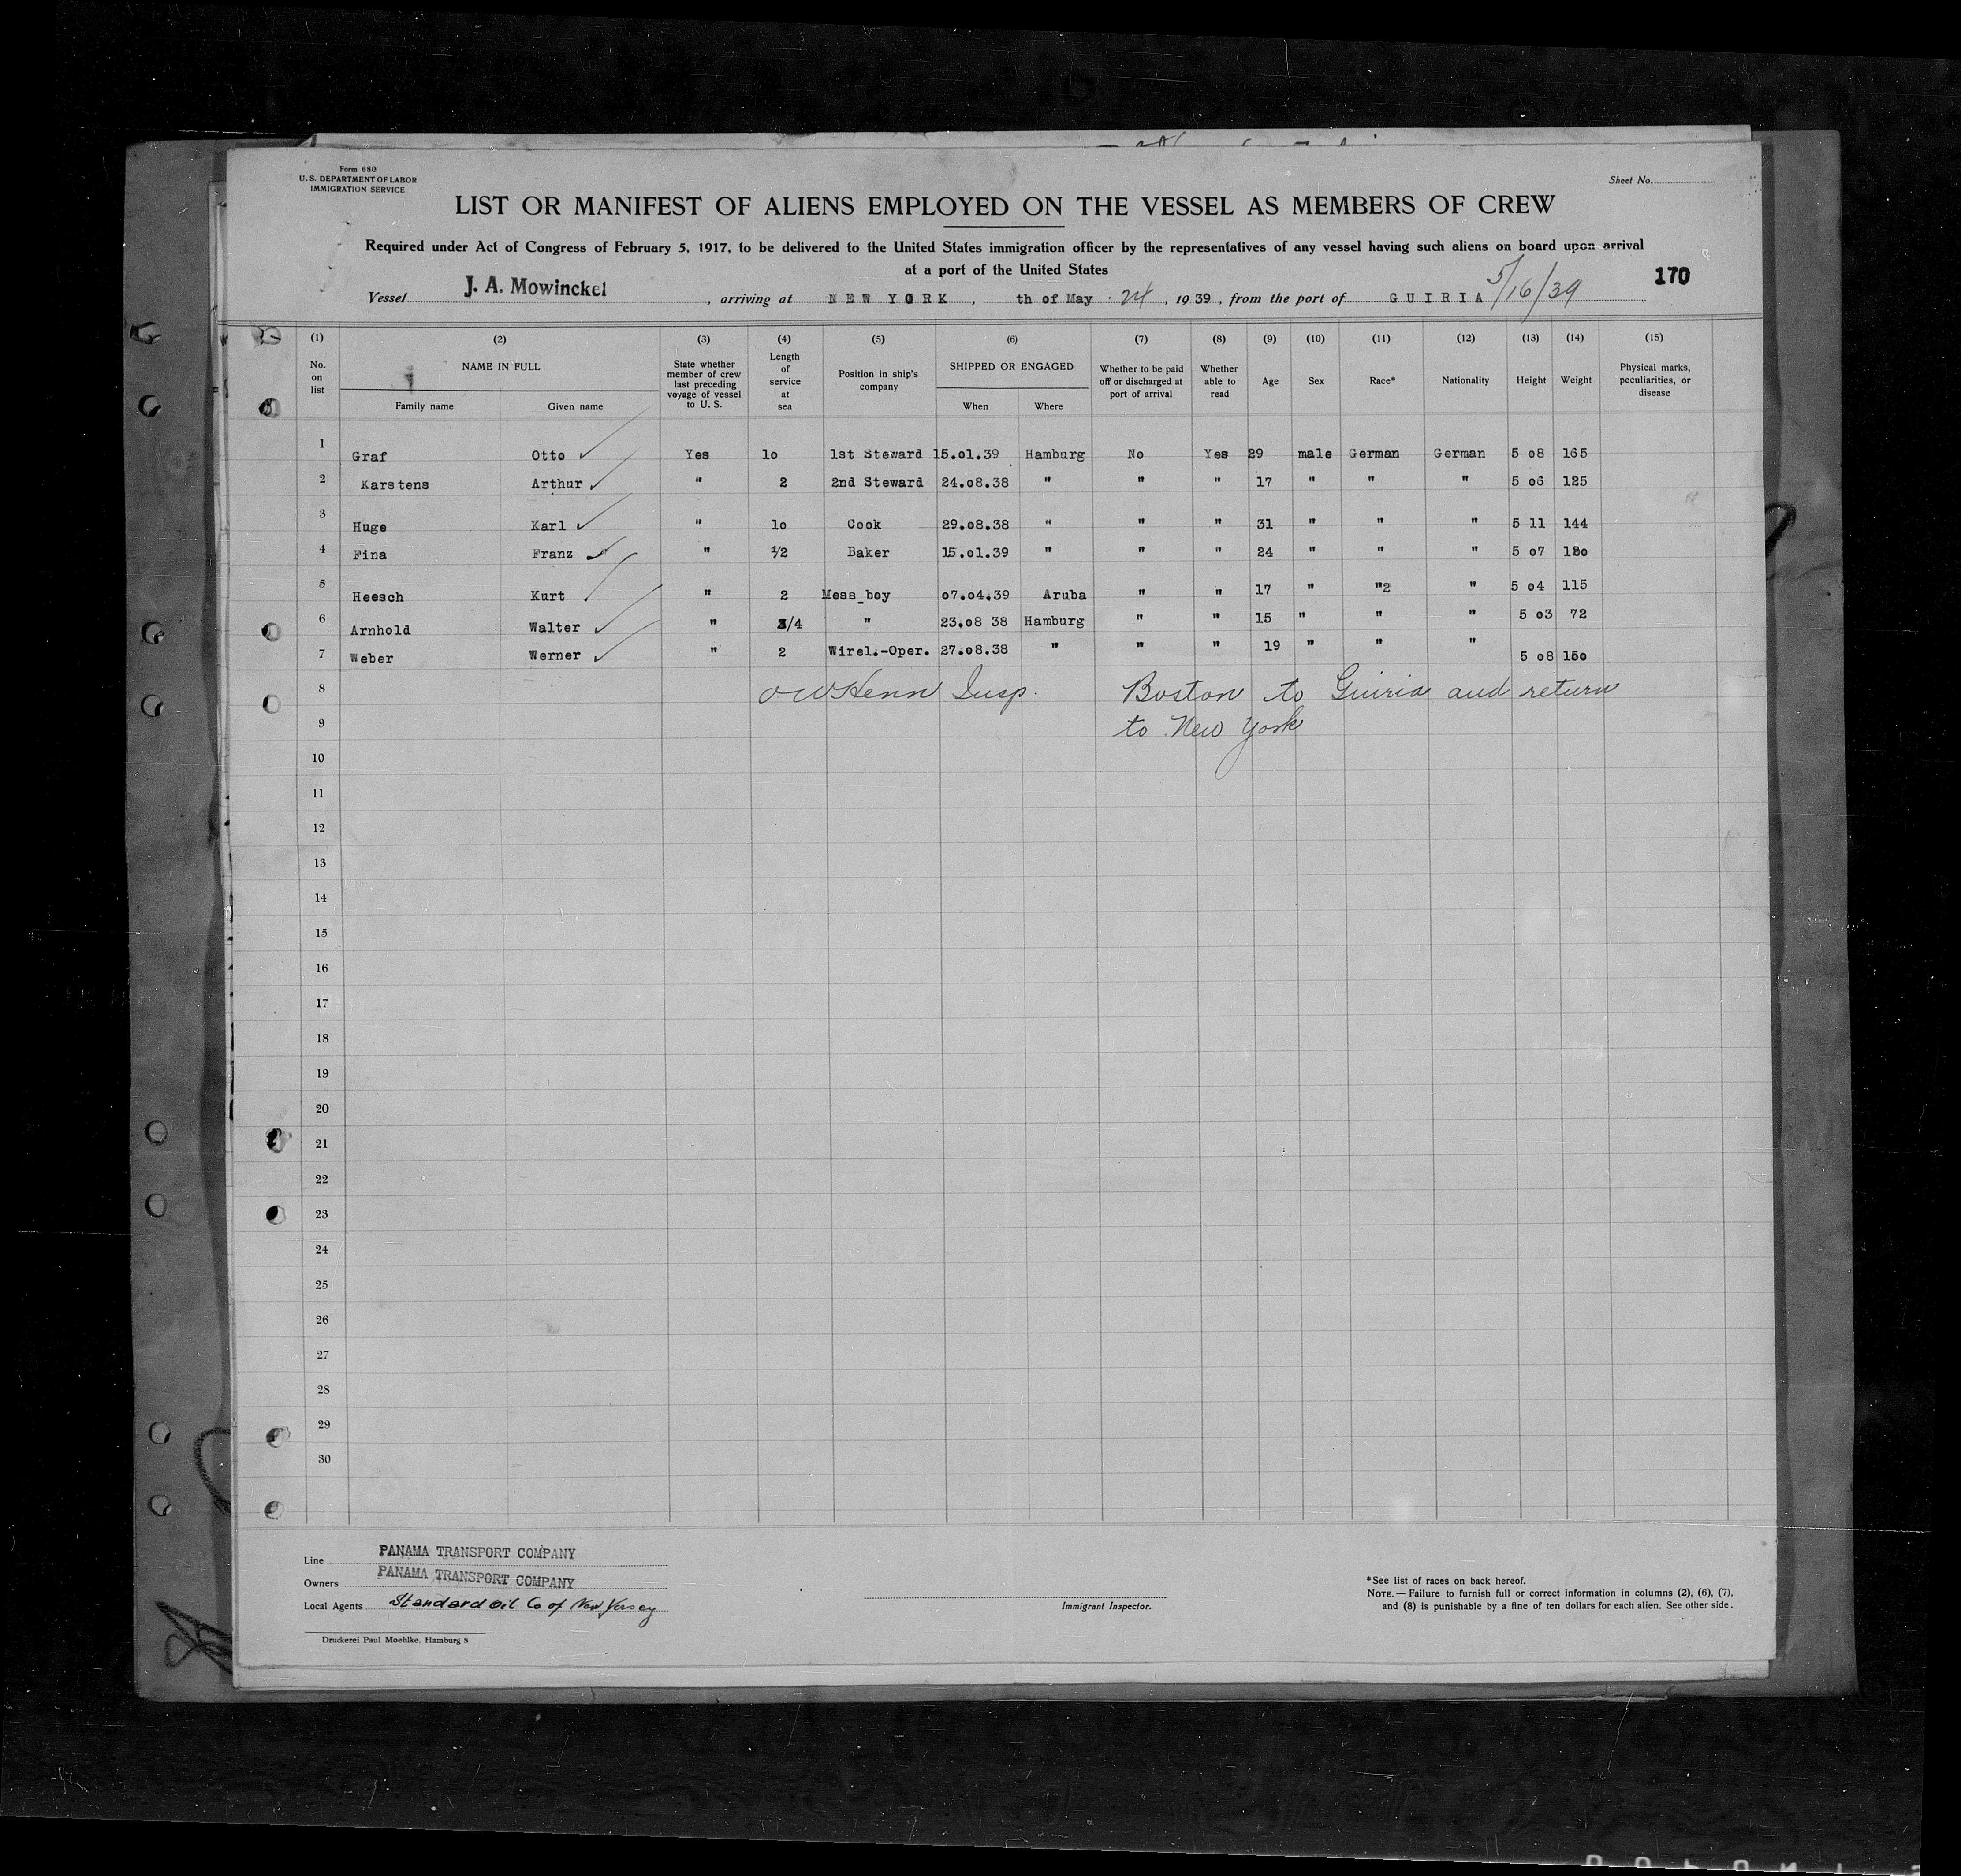 Form 680
U. S. DEPARTMENT OF LABOR
IMMIGRATION SERVICE
Sheet No.
LIST OR MANIFEST OF ALIENS EMPLOYED ON THE VESSEL AS MEMBERS OF CREW
Required under Act of Congress of February 5, 1917, to be delivered to the United States immigration officer by the representatives of any vessel having such aliens on board upon arrival
at a port of the United States
170
Vessel J. A. Mowinckel, arriving at NEW YORK, th of May 24, 1939, from the port of GUIRIA 5/16/39
(1) (2) (3) (4) (5) (6) (7) (8) (9) (10) (11) (12) (13) (14) (15)
No. on list
NAME IN FULL
Family name Given name
State whether member of crew last preceding voyage of vessel to U. S.
Length of service at sea
Position in ship's company
SHIPPED OR ENGAGED
When Where
Whether to be paid off or discharged at port of arrival
Whether able to read
Age
Sex
Race*
Nationality
Height
Weight
Physical marks, peculiarities, or disease
1 Graf Otto Yes 1o 1st Steward 15.o1.39 Hamburg No Yes 29 male German German 5 o8 165
2 Karstens Arthur " 2 2nd Steward 24.o8.38 " " " 17 " " " 5 o6 125
3 Huge Karl " 1o Cook 29.o8.38 " " " 31 " " " 5 11 144
4 Fina Franz " 1/2 Baker 15.o1.39 " " " 24 " " " 5 o7
5 Heesch Kurt " 2 Mess_boy o7.o4.39 Aruba " " 17 " "2 " 5 o4 115
6 Arnhold Walter " 3/4 " 23.o8 38 Hamburg " " 15 " " " 5 o3 72
7 Weber Werner " 2 Wirel.-Oper. 27.o8.38 " " " 19 " " " 5 o8 15o
8 Insp. Boston to Guiria and return
9 to New York
10
11
12
13
14
15
16
17
18
19
20
21
22
23
24
25
26
27
28
29
30
Line PANAMA TRANSPORT COMPANY
Owners PANAMA TRANSPORT COMPANY
Local Agents Standard Oil Co of New Jersey
Immigrant Inspector.
*See list of races on back hereof.
NOTE.—Failure to furnish full or correct information in columns (2), (6), (7),
and (8) is punishable by a fine of ten dollars for each alien. See other side.
Druckerei Paul Moehlke, Hamburg 8